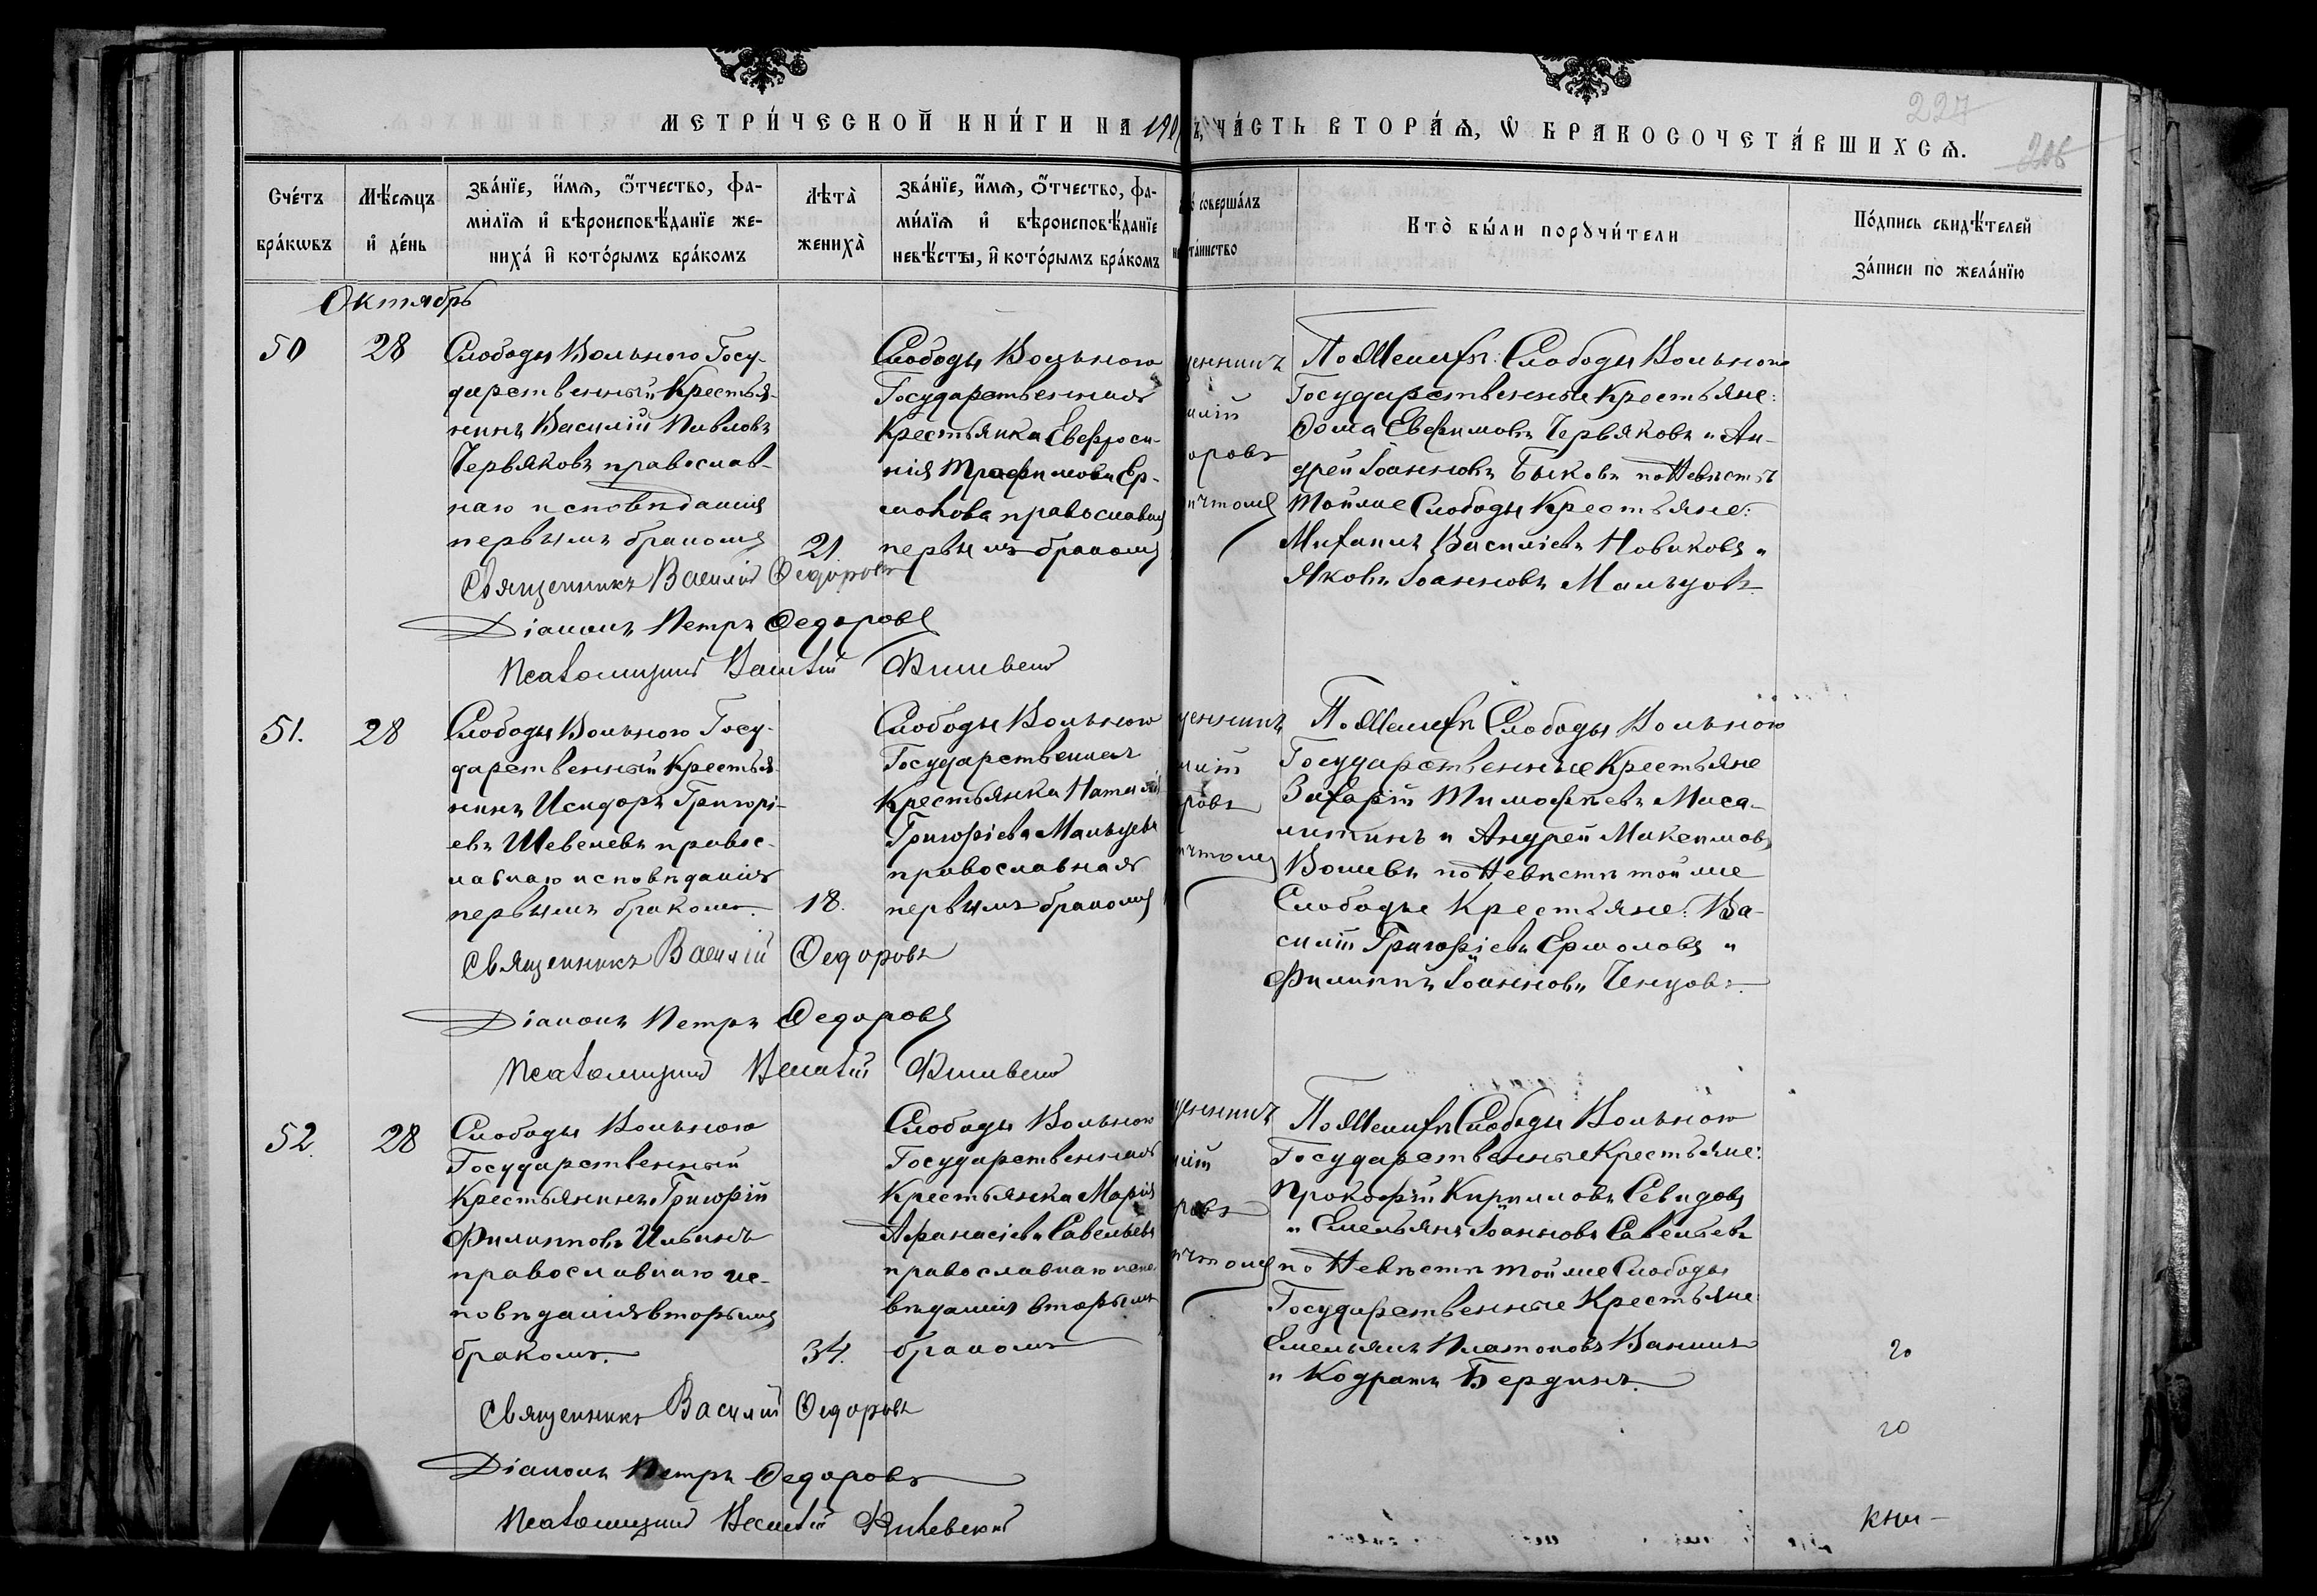 МЕТРИ́ЧЕСКОЙ КНИ́ГИ НА 190 Ъ, ЧА́СТЬ ВТОРА́Ѧ, Ѡ БРАКОСОЧЕТА́ВШИХСѦ.
227
206
Сче́тъ бра́кѡвъ
Мѣ́сѧцъ и҆ де́нь
Зва́нїе, и҆́мѧ, ѻ҆́тчество, фа-
ми́лїѧ и҆ вѣроисповѣ́данїе же-
ниха́ и҆ кото́рымъ бра́комъ
Лѣта̀ жениха̀
Зва́нїе, и҆́мѧ, ѻ҆́тчество, фа-
ми́лїѧ и҆ вѣроисповѣ́данїе
невѣ́сты, и҆ кото́рымъ бра́комъ
соверша́лъ
та́инство
Кто̀ бы́ли порꙋчи́тели
По́дпись свидѣ́телей
за́писи по жела́нїю
Октябрь
50
28
Слободы Вольного Госу-
дарственный Крестья-
нинъ Василій Павловъ
Червяковъ православ-
наго исповѣданія
первымъ бракомъ
21.
Слободы Вольного
Государственная
Крестьянка Евфроси-
нія Трофимова Ер-
молова православная
первымъ бракомъ
По Женихѣ: Слободы Вольного
Государственные Крестьяне:
Фома Евфимовъ Червяковъ и Ан-
дрей Іоанновъ Быковъ по Невѣстѣ
той же Слободы Крестьяне:
Михаилъ Василіевъ Новиковъ и
Яковъ Іоанновъ Мальцовъ.
Священникъ Василій Федоровъ
Діаконъ Петръ Федоровъ
Псаломщикъ
51.
28
Слободы Вольного Госу-
дарственный Крестья-
нинъ Исидоръ Григорі-
евъ Шевелевъ правос-
лавнаго исповѣданія
первымъ бракомъ.
18.
Слободы Вольного
Государственная
Крестьянка Наталія
Григоріева Мальцева
православная
первымъ бракомъ
По Женихѣ Слободы Вольного
Государственные Крестьяне
Захарій Тимофѣевъ Маса-
литинъ и Андрей Максимовъ
по Невѣстѣ той же
Слободы Крестьяне: Ва-
силій Григоріевъ Ермоловъ и
Филиппъ Іоанновъ Ченцовъ.
Священникъ Василій Федоровъ
Діаконъ Петръ Федоровъ
Псаломщикъ
52.
28
Слободы Вольного
Государственный
Крестьянинъ Григорій
Филипповъ Ильинъ
православнаго ис-
повѣданія вторымъ
бракомъ.
34.
Слободы Вольного
Государственная
Крестьянка Марія
Афанасіева Савельева
православнаго испо-
вѣданія вторымъ
бракомъ
По Женихѣ Слободы Вольного
Государственные Крестьяне:
Прокофій Кирилловъ Севидовъ
и Емельянъ Іоанновъ Савельевъ
по Невѣстѣ той же Слободы
Государственные Крестьяне:
Емельянъ Платоновъ Ванинъ
и Кодратъ Бердинъ.
Священникъ Василій Федоровъ
Діаконъ Петръ Федоровъ
Псаломщикъ